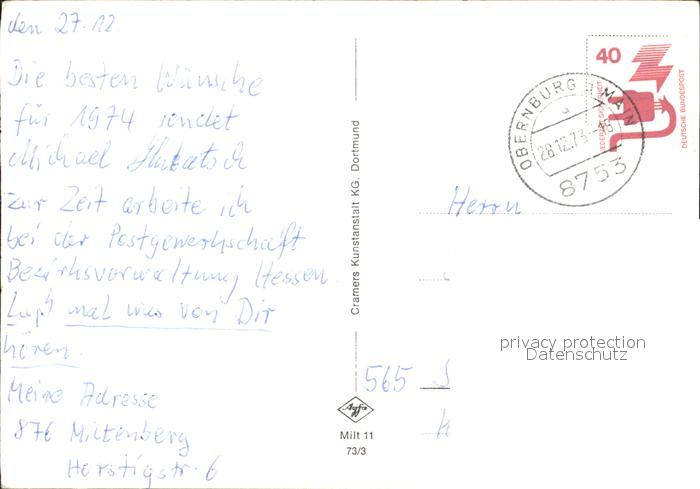 den 27.12
Die besten Wünsche
für 1974 sendet
Michael
zur Zeit arbeite ich
bei der Postgewerkschaft
Bezirksverwaltung Hessen.
Laß mal was von Dir
hören.
Meine Adresse
876 Miltenberg
Horstigstr. 6
Cramers Kunstanstalt KG. Dortmund
Agfa
Milt 11
73/3
40
JEDERZEIT SICHERHEIT
DEUTSCHE BUNDESPOST
OBERNBURG a MAIN
a
28.12.73-16
8753
Herrn
565 S
privacy protection
Datenschutz